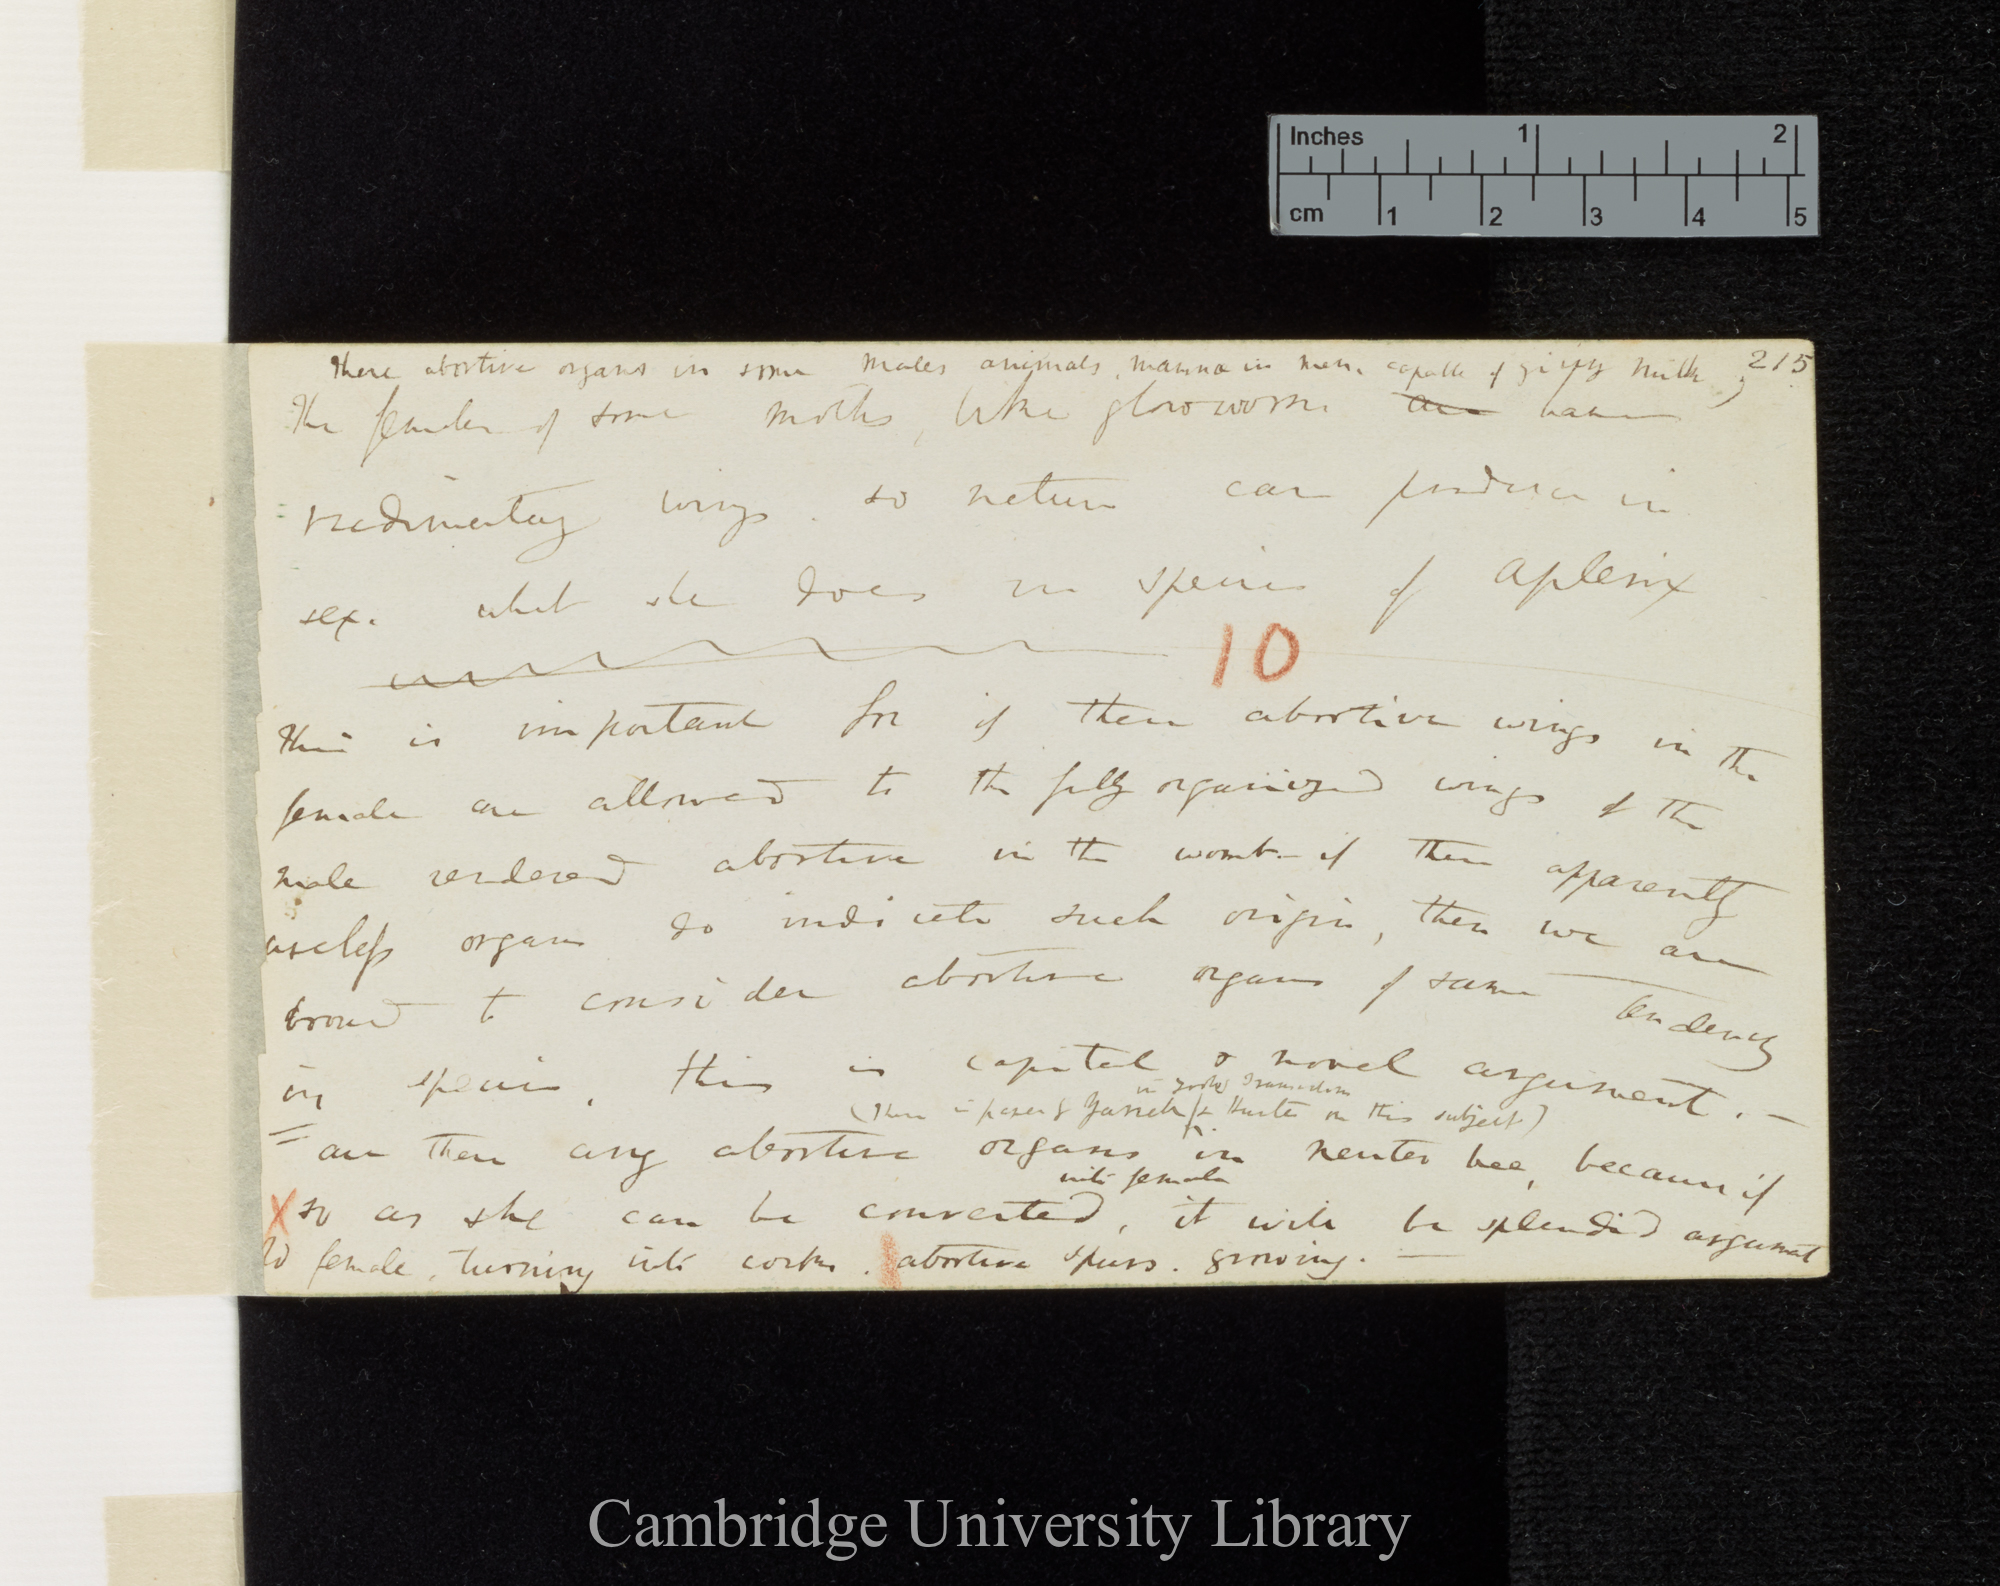 Inches 1 2
cm 1 2 3 4 5
215
there abortive organs in some males animals, mamma in men, capable of giving milk,
The females of some moths, like glowworm are have
rudimentary wings. so nature can produce in
sex. what she does in species of Apterix
10
this is important for if these abortive wings in the
female are allowed to the fully organized wings of the
male rendered abortive in the womb. — if these apparently
useless organs do indicate such origin, then we are
bound to consider abortive organs of same tendency
in species, this is capital & novel argument. —
in gooly Dramadom
(There is paper of Yarrell / & Hunter on this subject)
= are there any abortive organs in neuter bee, because if
into female
X so as she can be converted, it will be splendid argument
Old female, turning into cocks. abortive spurs. growing. —
Cambridge University Library